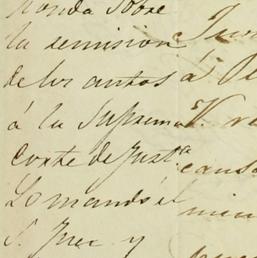 ronda sobre
la remision
de los autos
á la Suprema
Corte de Justa
Lo mandó el
S. Juez y
á
V.
causa